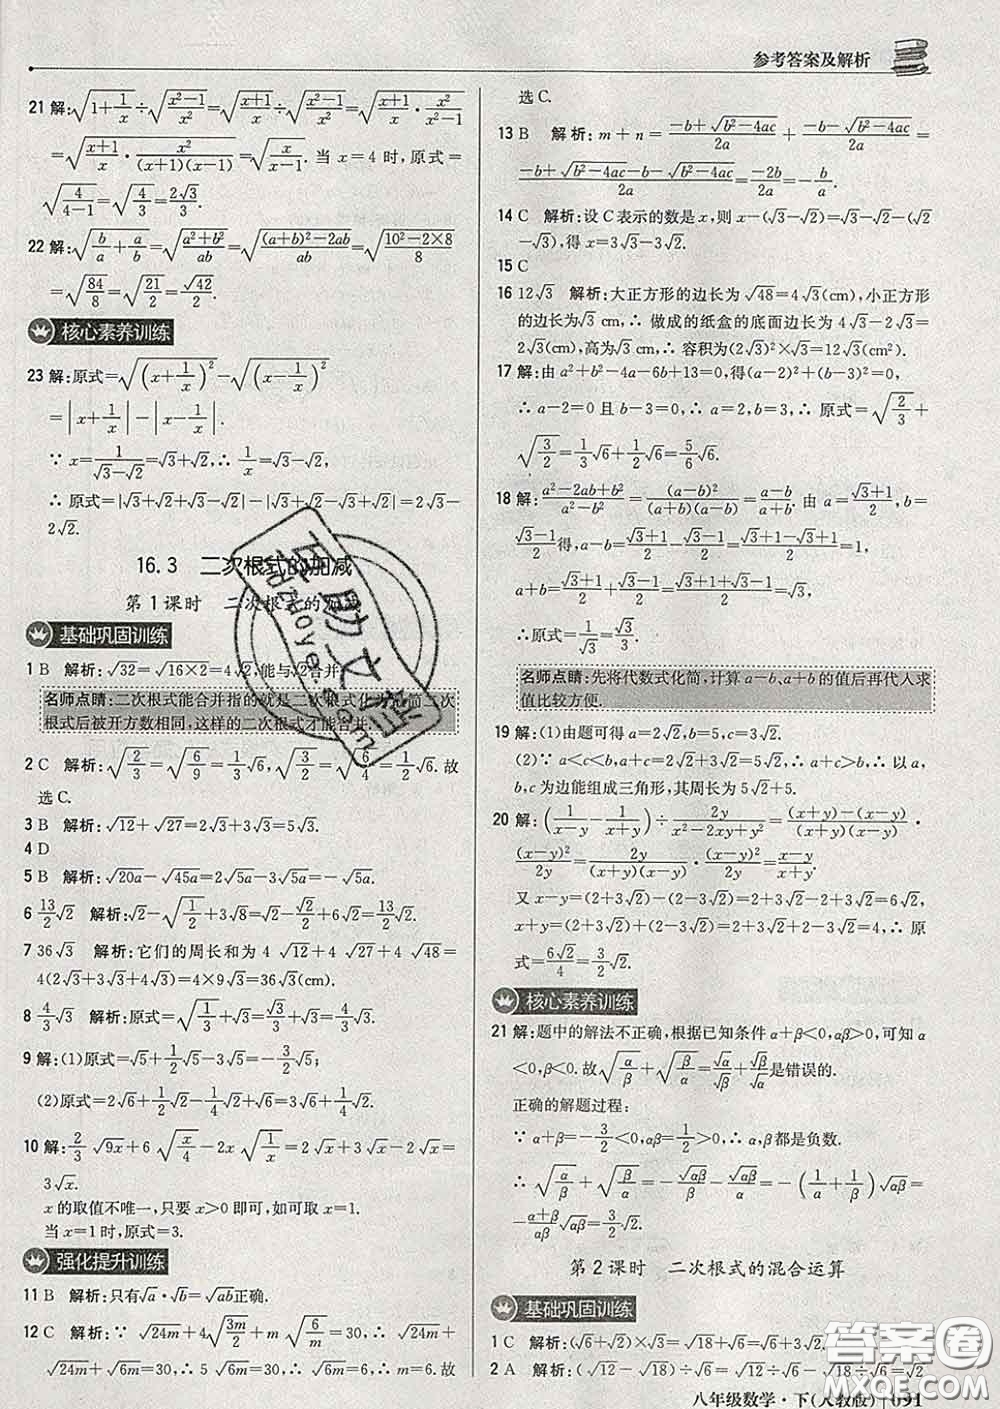 参考答案及解析
21 解:√(1+1/x)÷√((x²−1)/x²)=√((x+1)/x)÷√((x²−1)/x²)=√((x+1)/x·x²/(x²−1))
=√((x+1)/x·x²/((x+1)(x−1)))=√(x/(x−1)). 当 x=4 时,原式=
√(4/(4−1))=√(4/3)=2√3/3.
22 解:√(b/a+a/b)=√((a²+b²)/ab)=√(((a+b)²−2ab)/ab)=√((10²−2×8)/8)
=√(84/8)=√(21/2)=√42/2.
核心素养训练
23 解:原式=√((x+1/x)²)−√((x−1/x)²)
=|x+1/x|−|x−1/x|.
∵ x=1/(√3−√2)=√3+√2,∴ 1/x=√3−√2,
∴ 原式=|√3+√2+√3−√2|−|√3+√2−√3+√2|=2√3−
2√2.
16.3 二次根式的加减
第 1 课时 二次根式的加减
基础巩固训练
1 B 解析:√32=√(16×2)=4√2,能与√2合并.
名师点睛:二次根式能合并指的就是二次根式化为最简二次
根式后被开方数相同,这样的二次根式才能合并.
2 C 解析:√(2/3)=√(6/9)=1/3√6,√(3/2)=√(6/4)=1/2√6. 故
选 C.
3 B 解析:√12+√27=2√3+3√3=5√3.
4 D
5 B 解析:√20a−√45a=2√5a−3√5a=−√5a.
6 13/2√2 解析:√2−√(1/2)+3√8=√2−√2/2+6√2=13/2√2.
7 36√3 解析:它们的周长和为 4√12+4√27+4√48=
4(2√3+3√3+4√3)=4×9√3=36√3(cm).
8 4/3√3 解析:原式=√(1/3)+√3=√3/3+√3=4/3√3.
9 解:(1)原式=√5+1/2√5−3√5=−3/2√5;
(2)原式=2√6+1/2√2−1/4√2+√6=3√6+1/4√2.
10 解:2/3√9x+6√(x/4)−2x√(1/x)=2√x+3√x−2√x=
3√x.
x 的取值不唯一,只要 x>0 即可,例如:x=1.
当 x=1 时,原式=3.
强化提升训练
11 B 解析:只有√a·√b=√ab正确.
12 C 解析:∵ √24m+4√(3m/2)+m√(6/m)=30,∴ √24m+
√24m+√6m=30,∴ 5√6m=30,∴ √6m=6,∴ m=6. 故
选 C.
13 B 解析:m+n=(−b+√(b²−4ac))/2a+(−b−√(b²−4ac))/2a=
(−b+√(b²−4ac)−b−√(b²−4ac))/2a=−2b/2a=−b/a.
14 C 解析:设 C 表示的数是 x,则 x−(√3−√2)=√3−√2−(√2
−√3),得 x=3√3−3√2.
15 C
16 12√3 解析:大正方形的边长为√48=4√3(cm),小正方形
的边长为√3 cm,∴ 做成的纸盒的底面边长为 4√3−2√3=
2√3(cm),高为√3 cm;∴ 容积为(2√3)²×√3=12√3(cm²).
17 解:由 a²+b²−4a−6b+13=0,得(a−2)²+(b−3)²=0,
∴ a−2=0 且 b−3=0,∴ a=2,b=3,∴ 原式=√(2/3)+
√(3/2)=1/3√6+1/2√6=5/6√6.
18 解:(a²−2ab+b²)/(a²−b²)=(a−b)²/((a+b)(a−b))=(a−b)/(a+b). 由 a=(√3+1)/2,b=
(√3−1)/2 得,a−b=(√3+1)/2−(√3−1)/2=(√3+1−√3+1)/2=1,
a+b=(√3+1)/2+(√3−1)/2=(√3+1+√3−1)/2=√3,
∴原式=1/√3=√3/3.
名师点睛:先将代数式化简,计算 a−b,a+b 的值后再代入求
值比较方便.
19 解:(1)由题可得 a=2√2,b=5,c=3√2.
(2)∵ a<c<b,a+c=2√2+3√2=5√2>b,∴ 以 a,
b,c 为边能组成三角形,其周长为 5√2+5.
20 解:(1/(x−y)−1/(x+y))÷2y/(x²−2xy+y²)=((x+y)−(x−y))/((x+y)(x−y))
·(x−y)²/2y=2y/((x+y)(x−y))·(x−y)²/2y=(x−y)/(x+y).
又 x−y=(2+3√2)−(2−3√2)=2+3√2−2+3√2=6√2,
x+y=(2+3√2)+(2−3√2)=2+3√2+2−3√2=4,∴ 原
式=6√2/4=3/2√2.
核心素养训练
21 解:题中的解法不正确,根据已知条件 α+β<0,αβ>0,可知
α<0,β<0. 所以√(α/β)+√(β/α)=√α/√β+√β/√α是错误的.
正确的解题过程:
∵ α+β=−3/2<0,αβ=1/2>0,∴ α,β都是负数.
∴ √(α/β)+√(β/α)=−√αβ/β−√αβ/α=−(1/α+1/β)√αβ=
−(α+β)/αβ·√αβ=3/2√2.
第 2 课时 二次根式的混合运算
基础巩固训练
1 C 解析:(√6+√2)×√3=√18+√6=√6+3√2.
2 A 解析:(√12−√18)÷√6=√12÷√6−√18÷√6=√2
八年级数学·下(人教版) 091
答案圈
MXQE.COM